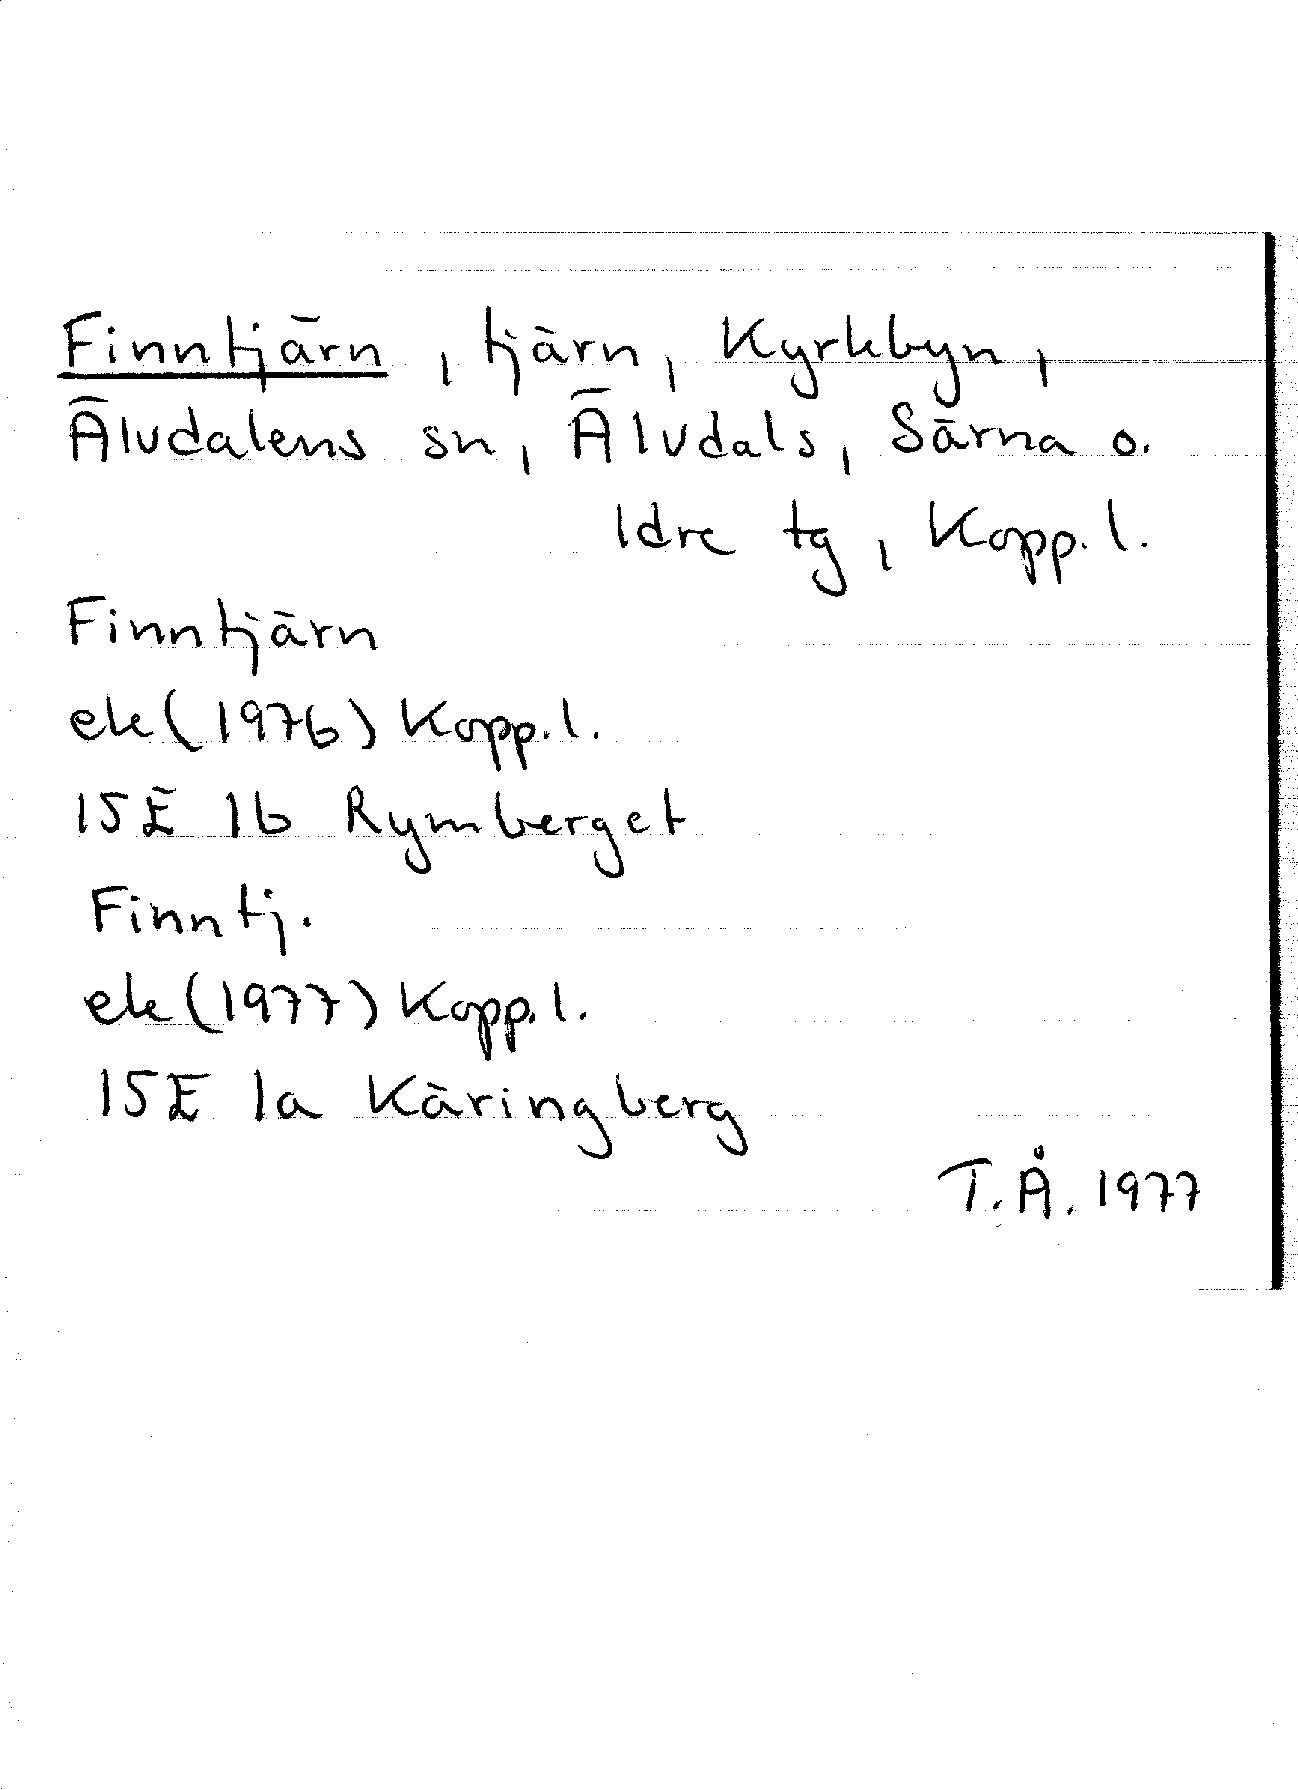 Finntjärn, tjärn, Kyrkbyn,
Älvdalens sn, Älvdals, Särna o.
Idre tg, Kopp.l.
Finntjärn
ek (1976) Kopp.l.
15E 1b Rymberget
Finntj.
ek (1977) Kopp.l.
15E 1a Käringberg
T.Å. 1977